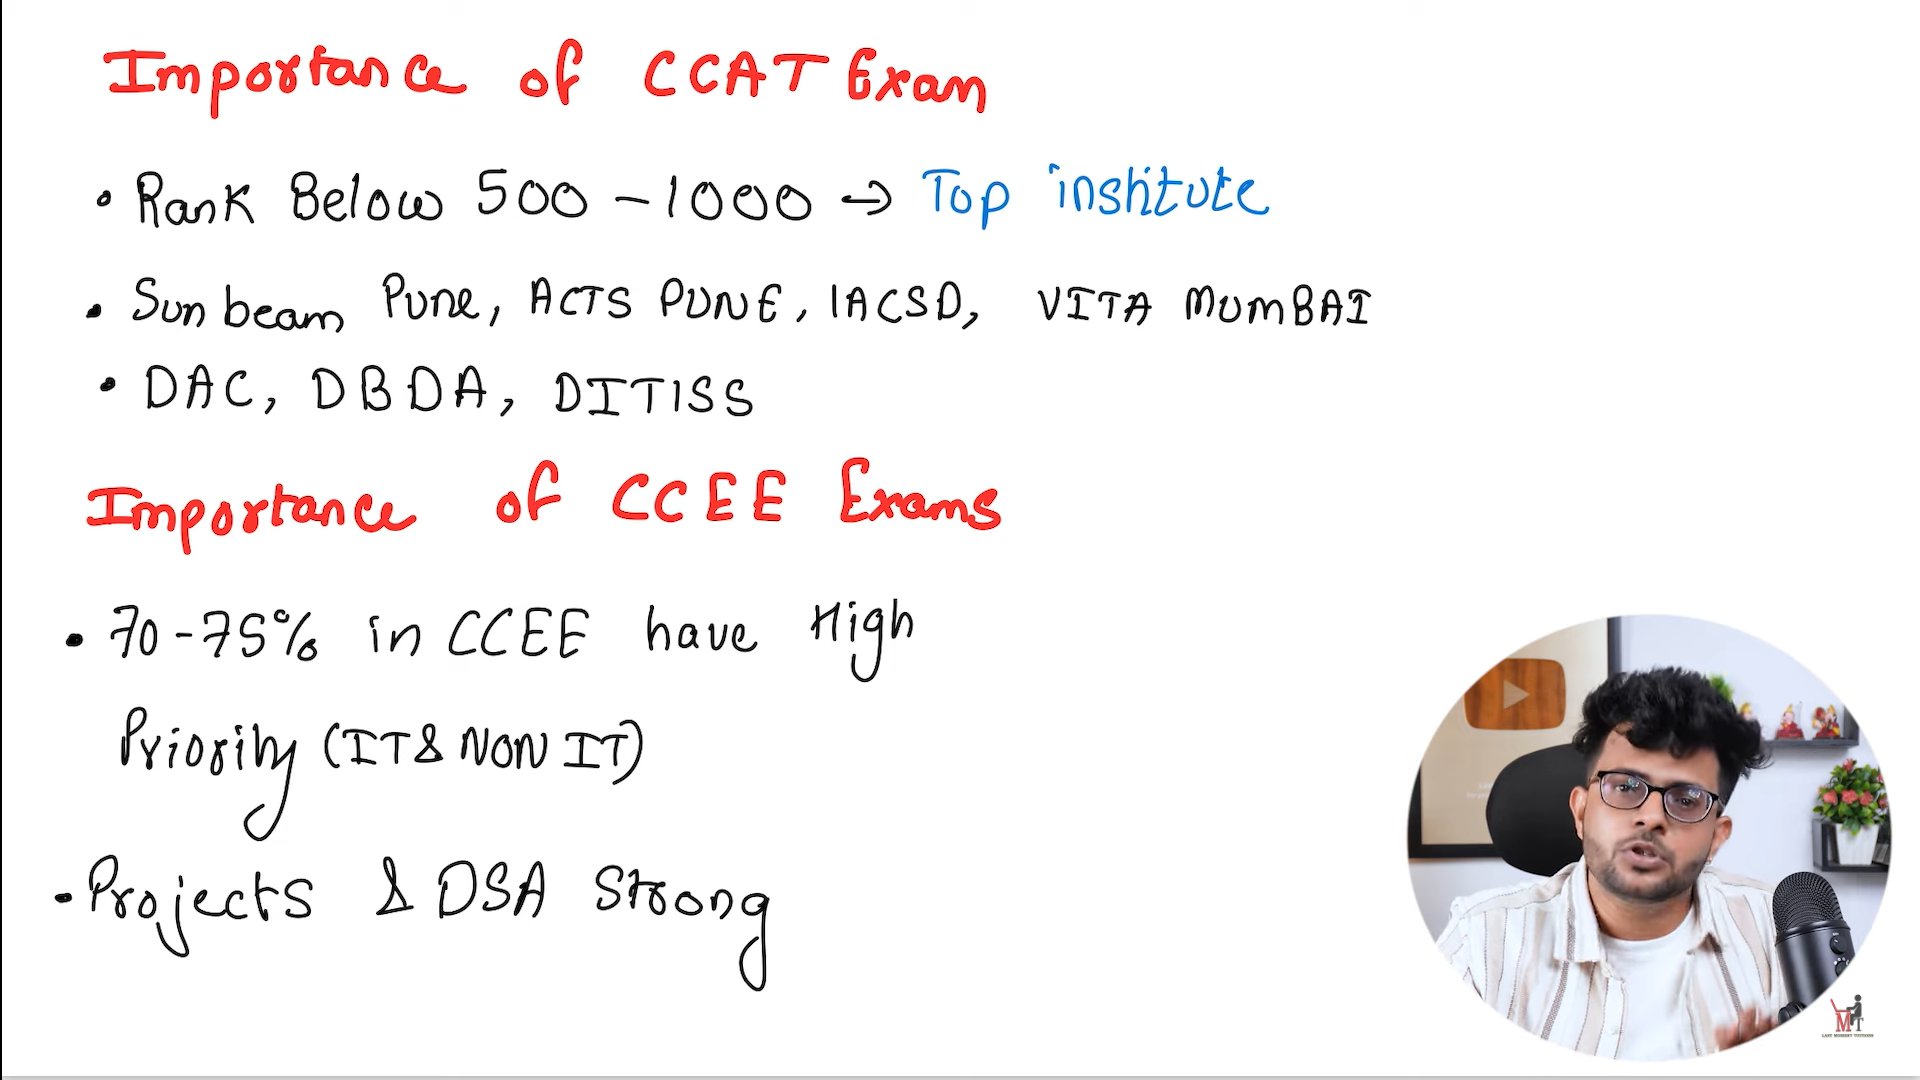 Importance of CCAT Exam
• Rank Below 500 - 1000 → Top institute
• Sunbeam Pune, ACTS PUNE, IACSD, VITA MUMBAI
• DAC, DBDA, DITISS
Importance of CCEE Exams
• 70-75% in CCEE have High
Priority (IT & NON IT)
• Projects & DSA Strong
MT
LAST MOMENT TUITIONS